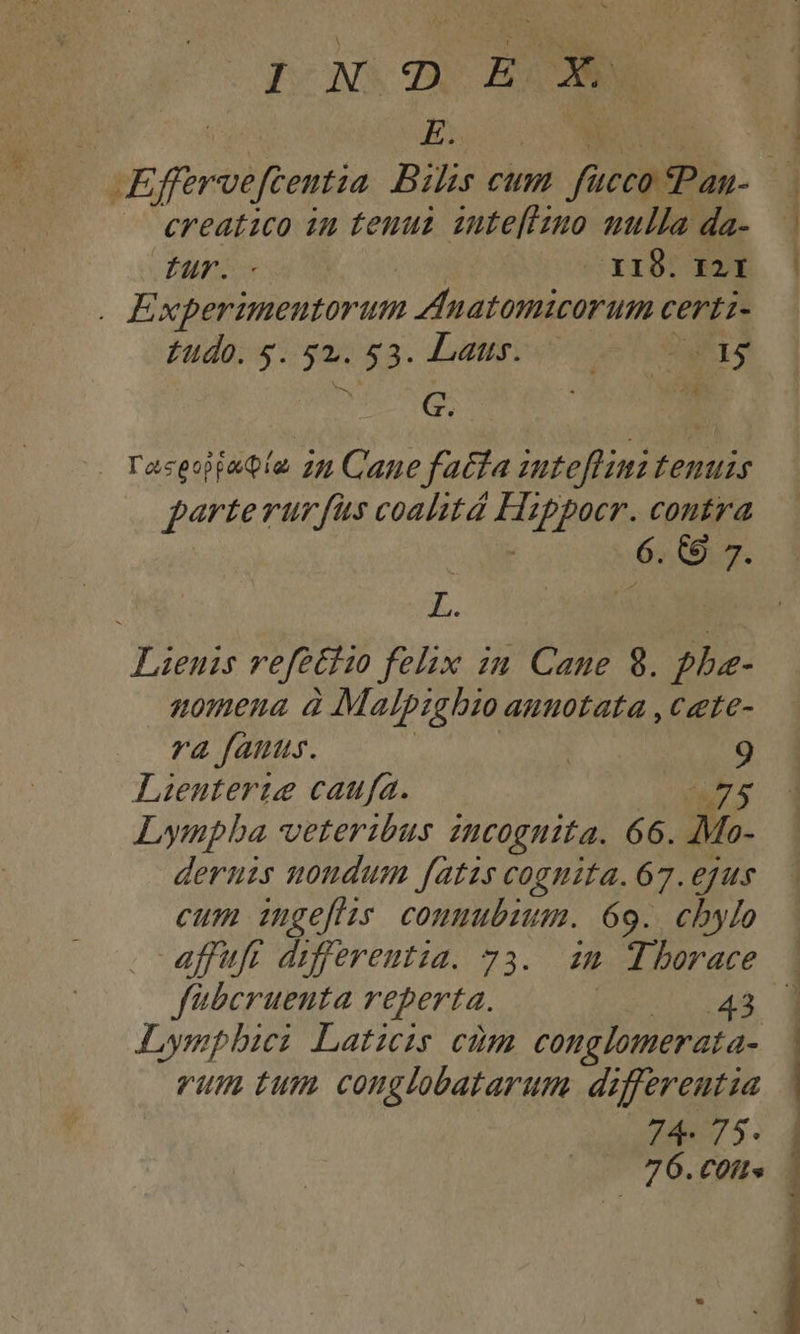 INDEX.
E.
Efferveſcentia Bilis cum ſucco Pan-
creatico in tenui inteſtino nulla da-
tur. 118. 121
Experimentorum Anatomicorum certi-
tudo. 5. 52. 53. Laus. 15
G.
in Cane facta inteſtini tenuis
parte rurſus coalitâ Hippocr. contra
6. & 7.
L.
Lienis reſectio felix in Cane 8. phæ-
nomena à Malpighio annotata, cæte-
ra ſanus. 9
Lienteriæ cauſa. 75
Lympha veteribus incognita. 66. Mo-
dernis nondum ſatis cognita. 67. ejus
cum ingeſtis connubium. 69. chylo
affuſi differentia. 73. in Thorace
ſubcruenta reperta. 43
Lymphici Laticis cùm conglomerata-
rum tum conglobatarum differentia
74. 75.
76. con-